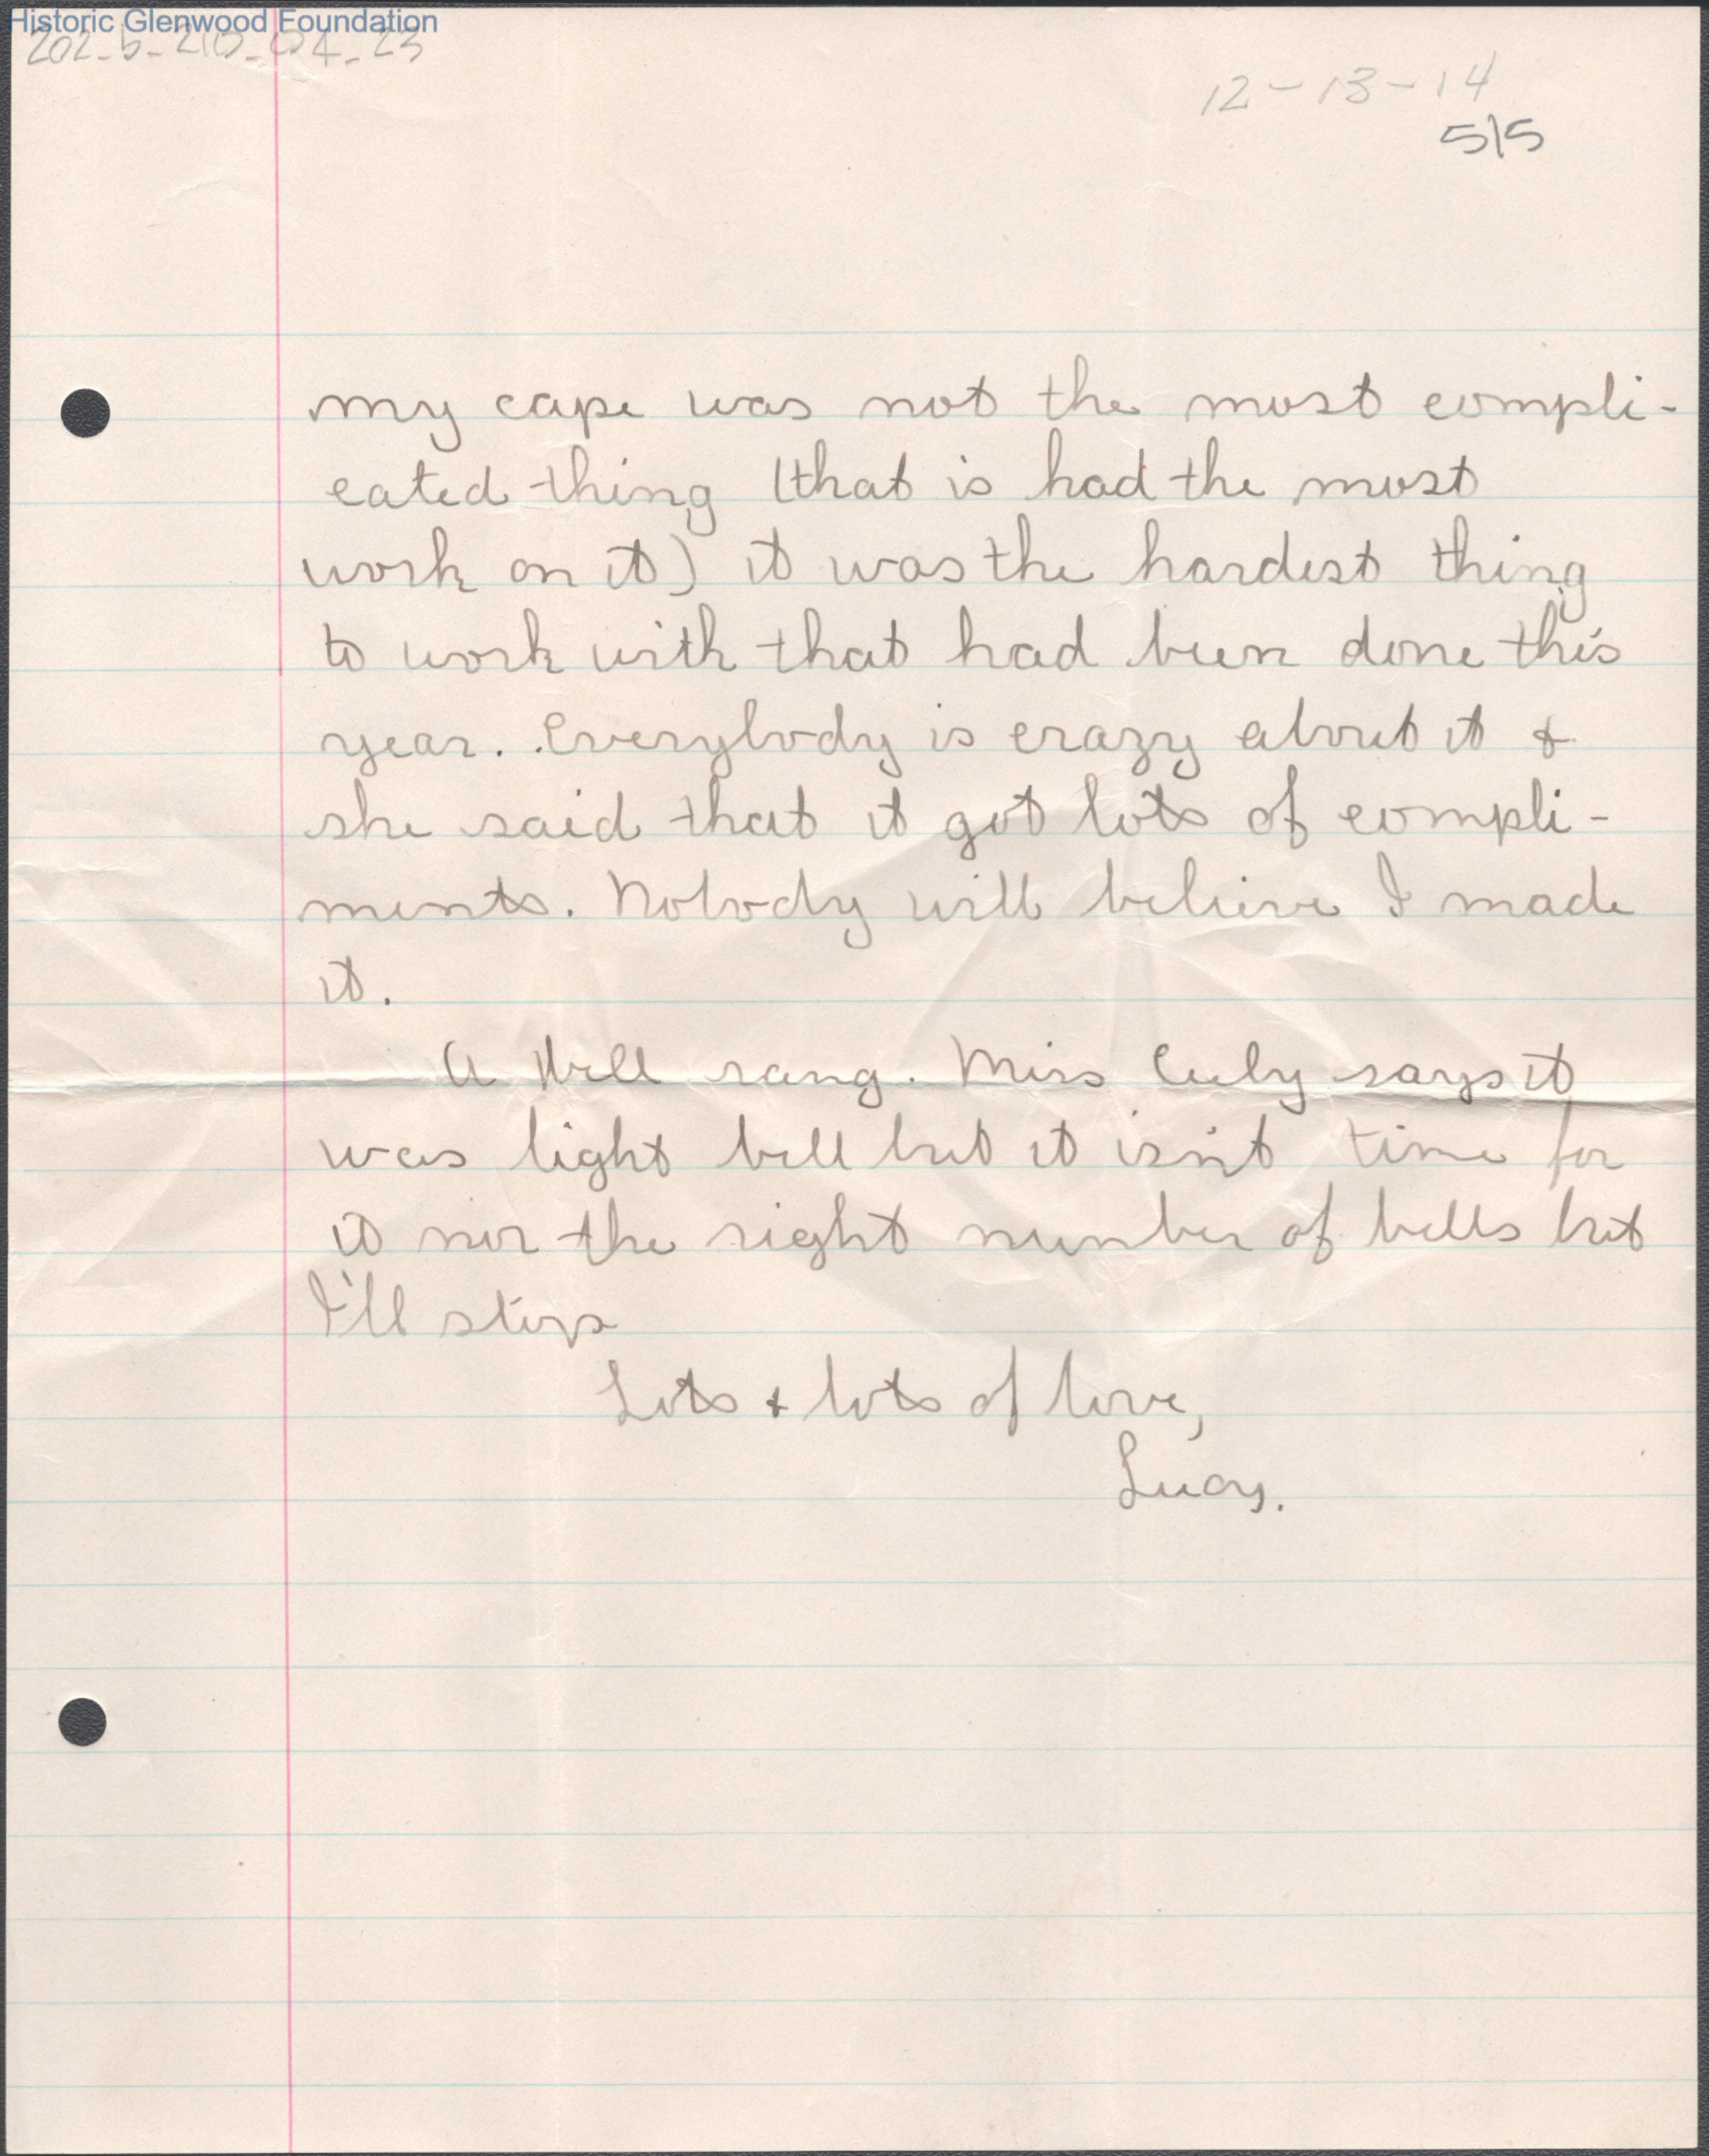 Historic Glenwood Foundation
12-13-14
5/5
my cape was not the most compli-
cated thing (that is had the most
work on it) it was the hardest thing
to work with that had been done this
year. Everybody is crazy about it &
she said that it got lots of compli-
ments. Nobody will believe I made
it.
A bell rang. Miss says it
was light bell but it isn't time for
it nor the right number of bells but
I'll stop
Lots & lots of love,
Lucy.